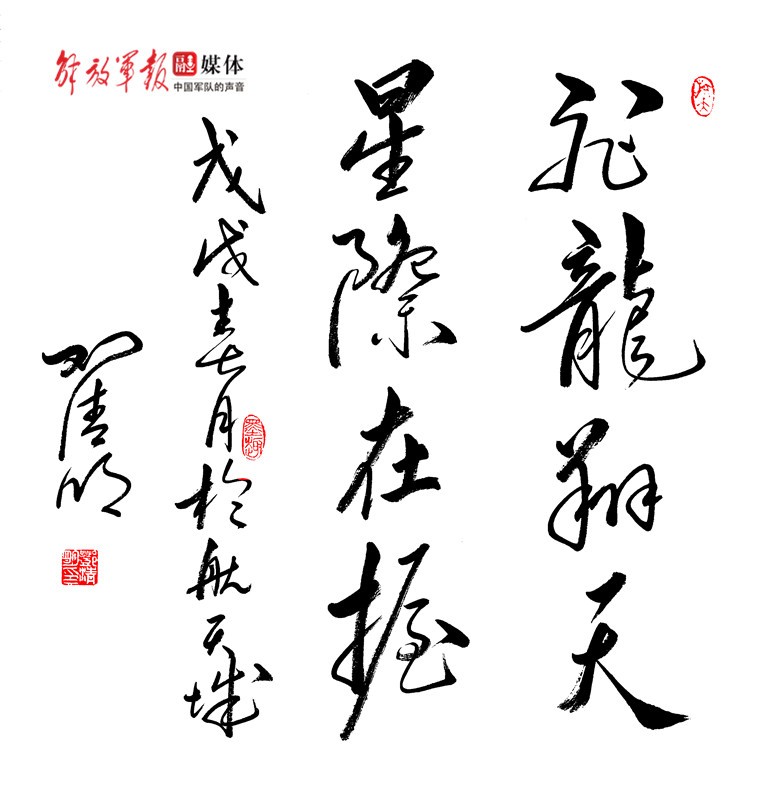 解放軍報 融媒体
中国军队的声音
飛龍翔天
星際在握
戊戌春月於航天城
邓清明